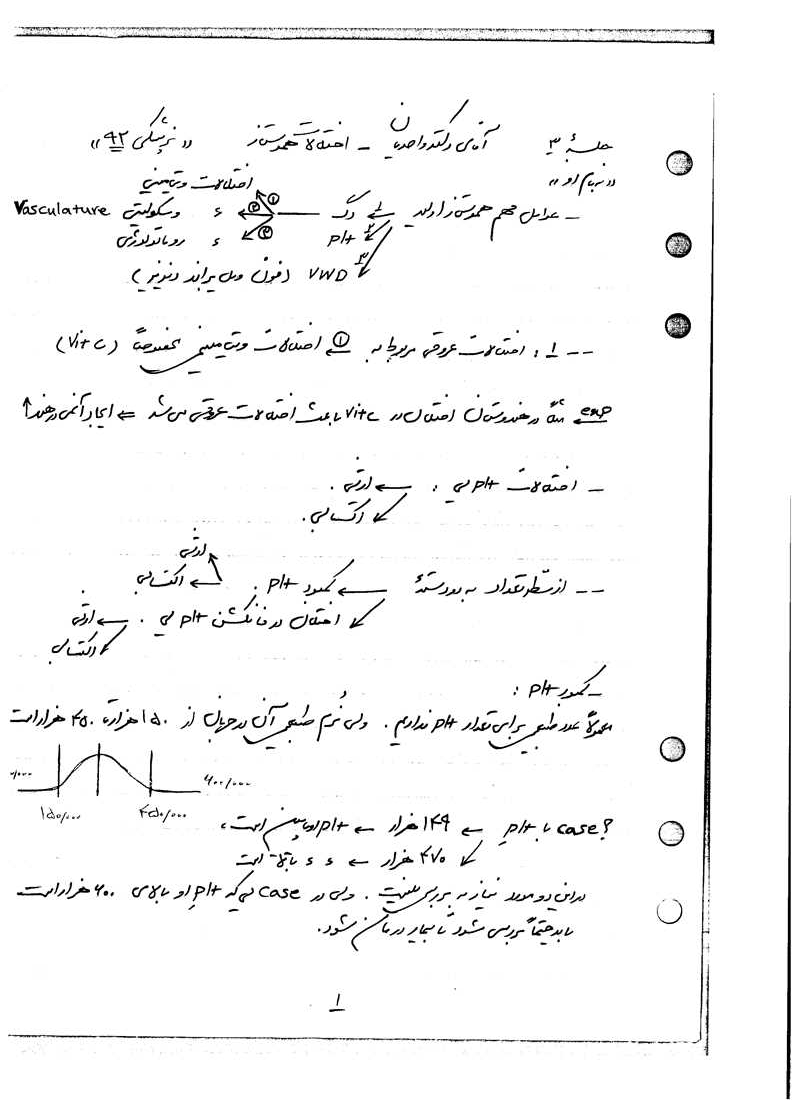 جلسهٔ ۳ آقای دکتر واحدیان - اختلالات هموستاز «پزشکی ۹۲»
«بنام او»
اختلالات ویتامینی
- عوامل مهم هموستاز اولیه ۱ رگ ① ② ء وسکولیتی Vasculature
۲ plt ③ ء روماتولوژی
۳ VWD (فون ویل براند دیزیز)
-- ۱: اختلالات عروقی مربوط به ① اختلالات ویتامینی مخصوصاً (Vit C)
exp مثلاً در هندوستان اختلال در Vit C باعث اختلالات عروقی می شد ⇐ ایجاد آنمی در هند ↑
- اختلالات plt یی : ← ارثی .
اکتسابی .
ارثی
-- از نظر تعداد به دو دستهٔ ← کمبود plt . ← اکتسابی
اختلال در فانکشن plt یی . ← ارثی
اکتسابی
- کمبود plt :
معمولاً عدد طبیعی برای تعداد plt نداریم . ولی نُرم طبیعی آن در جهان از ۱۵۰ هزار تا ۴۵۰ هزار است
۶۰۰/۰۰۰
۱۵۰/۰۰۰ ۴۵۰/۰۰۰
? case با plt ← ۱۴۹ هزار ← plt او پایین است ،
۴۷۰ هزار ← ء ء بالا است
در این دو مورد نیاز به بررسی نیست . ولی در case یی که plt او بالای ۶۰۰ هزار است
باید حتماً بررسی شود تا بیمار درمان شود.
۱